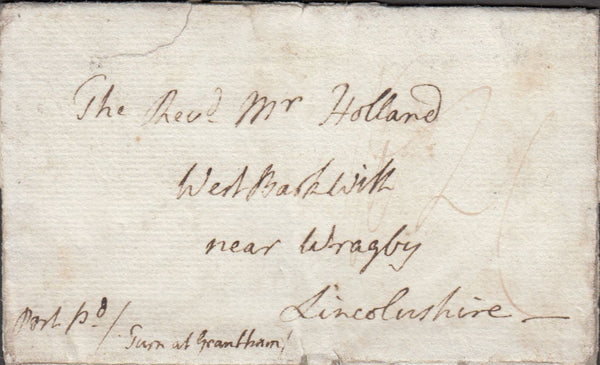 The Revd. Mr Holland
West Barkwith
near Wragby
Lincolnshire
Post pd/
Turn at Grantham/